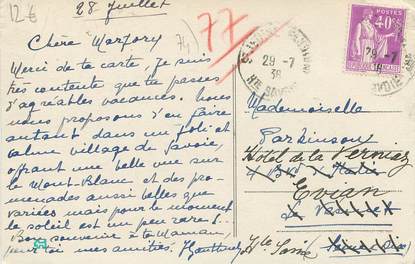 12€
28 Juillet
77
74
Chère Marjory
Merci de ta carte, je suis
très contente que tu passes
d'agréables vacances. Nous
nous proposons d'en faire
autant dans un joli et
calme village de Savoie,
offrant une belle vue sur
le Mont-Blanc et des pro-
menades aussi belles que
variées, mais pour le moment
le soleil est un peu rare!..
Bon souvenir à ta Maman,
pour toi mes amitiés.
29-7
38
Hte SAVOIE
POSTES
40c
29-7
38
Mademoiselle
Parkinson
Hôtel de la Verniaz
Evian
Hte Savoie